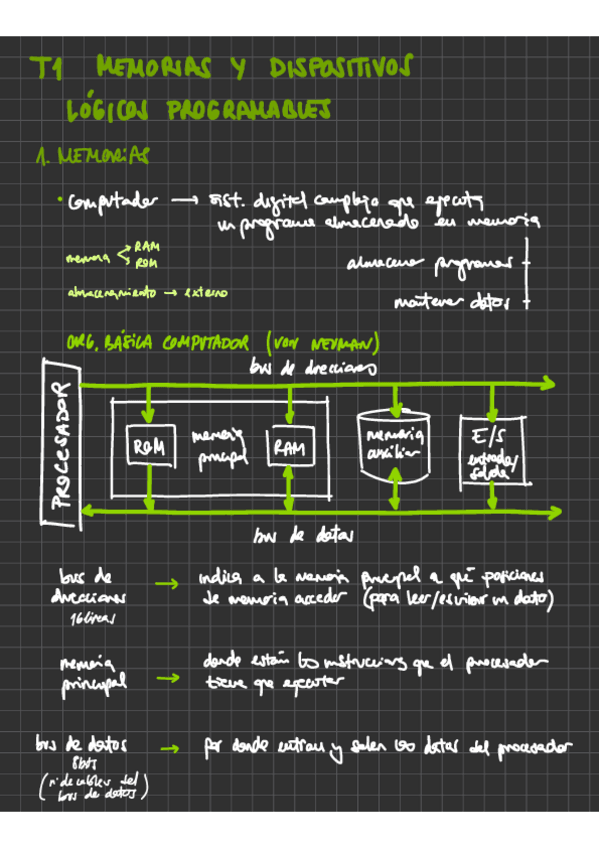 T1 MEMORIAS Y DISPOSITIVOS
LÓGICOS PROGRAMABLES
1. MEMORIAS
• Computador → Sist. digital complejo que ejecuta
un programa almacenado en memoria
memoria < RAM
ROM
almacenar programas
almacenamiento → externo
mantener datos
ORG. BÁSICA COMPUTADOR (VON NEUMAN)
bus de direcciones
PROCESADOR
ROM
memoria
principal
RAM
memoria
auxiliar
E/S
entrada/
salida
bus de datos
bus de
direcciones
16 líneas
→ indica a la memoria principal a qué posiciones
de memoria acceder (para leer/escribir un dato)
memoria
principal
→ donde están las instrucciones que el procesador
tiene que ejecutar
bus de datos
8 bits
(nº de cables del
bus de datos)
→ por donde entran y salen los datos del procesador